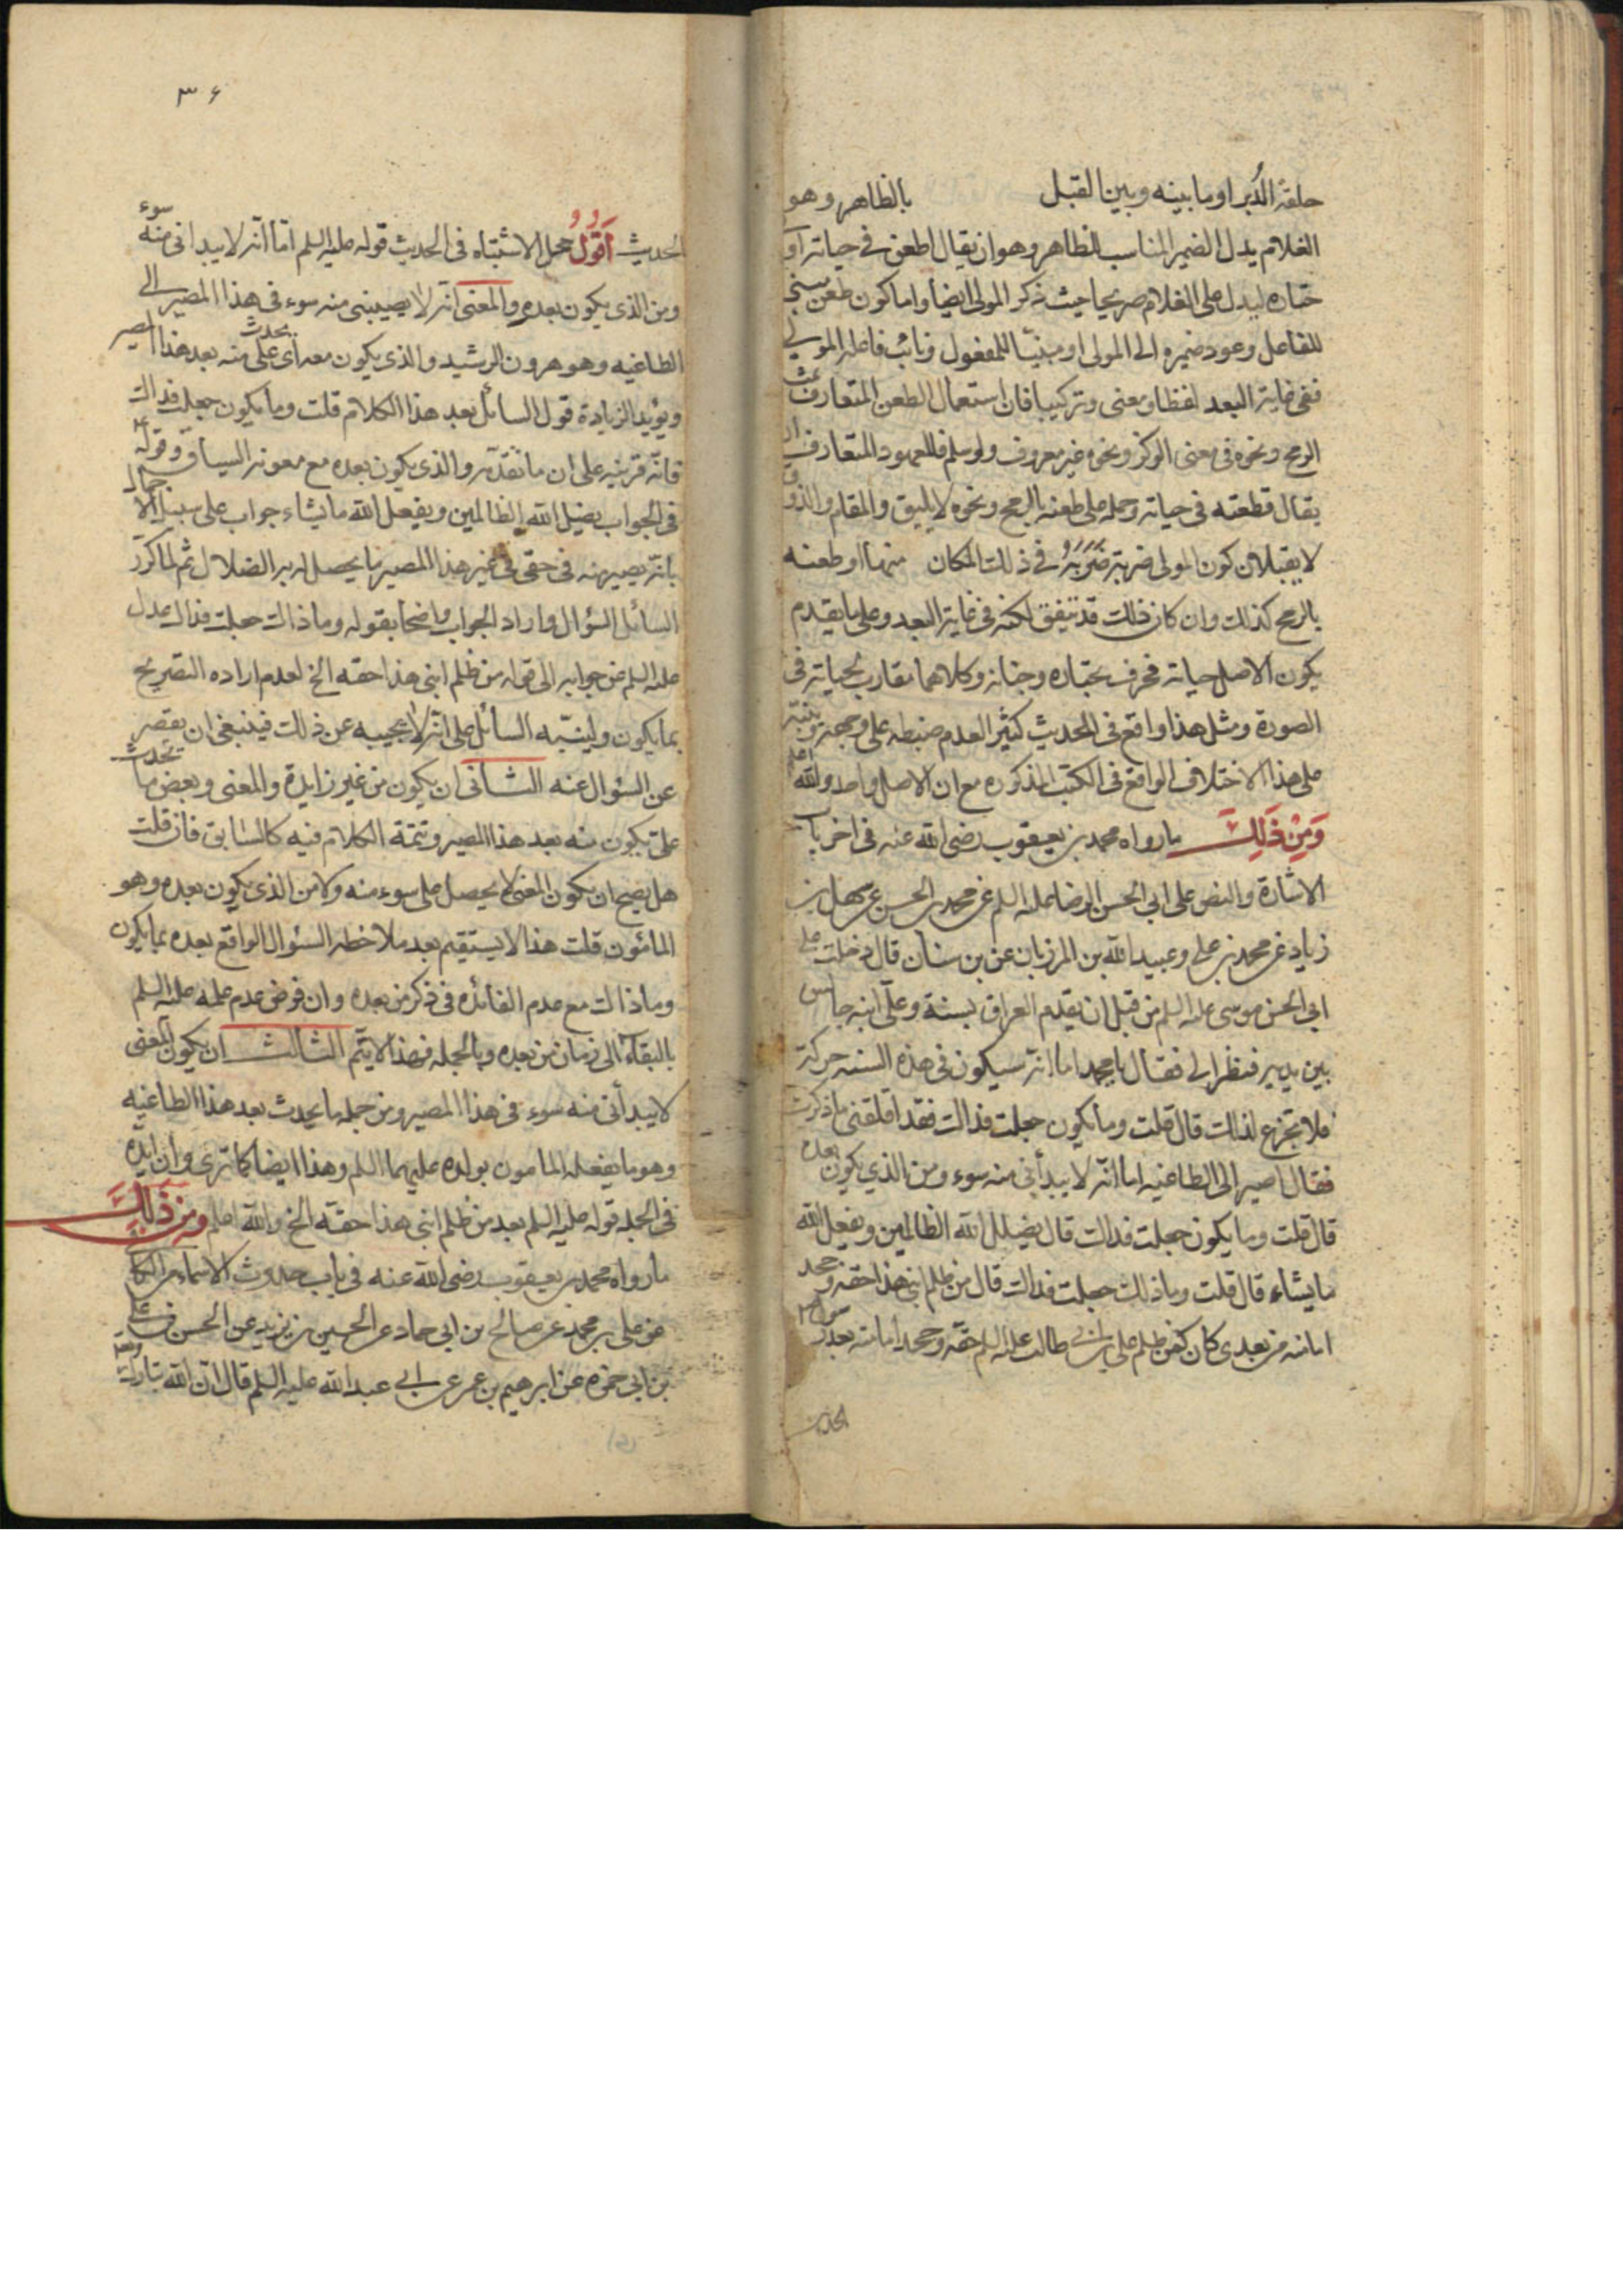 حلقة الدُبر او ما بينه وبين القبل بالظاهر وهو
الغلام بدل الضمير المناسب للظاهر وهو ان يقال اطعن في حياته او
ختاره ليدل على الغلام صريحا حيث ذكر المولى ايضا واما كون طعن
للفاعل وعود ضميره الى المولى او مبنيّا للمفعول ونائب فاعله المولى
ففي غاية البعد لفظا ومعنى وتركيبا فان استعمال الطعن المتعارف
الرمح ونحوه في معنى الوكز ونحوه غير معروف ولو سلم فالمعهود المتعارف ان
يقال قطعته في حياته وحمله على طعنه بالرمح ونحوه لا يليق والمقام والذوق
لا يقبلان كون المولى ضربته ضربة في ذلك المكان منها او طعنه
بالرمح كذلك وان كان ذلك قد يتفق لكنه في غاية البعد وعلى ما يقدم
يكون الاصل حياته فحرف بختاره وجنانه وكلاهما مقارب لحياته في
الصورة ومثل هذا واقع في الحديث كثير العدم ضبطه على وجهه
على هذا الاختلاف الواقع في الكتب المذكوره مع ان الاصل واحد والله اعلم
وَمِنْ ذَلِكَ ما رواه محمد بن يعقوب رضى الله عنه في اخر باب
الاشارة والنص على ابي الحسن الرضا عليه السلم عن محمد بن الحسن عن سهل بن
زياد عن محمد بن علي وعبيد الله بن المرزبان عن بن سنان قال دخلت على
ابي الحسن موسى عليه السلم من قبل ان يقدم العراق بسنة وعلّى ابنه جالس
بين يديه فنظر الي فقال يا محمد اما انه سيكون في هذه السنه حركة
فلا تجزع لذالك قال قلت وما يكون جعلت فداك فقد اقلقنى ما ذكرت
فقال اصير الى الطاغيه اما انّه لا يبدأنى منه سوء ومن الذي يكون بعده
قال قلت وما يكون جعلت فداك قال يضلل الله الظالمين ويفعل الله
ما يشاء قال قلت وما ذلك جعلت فداك قال من ظلم ابني هذا حقه وجحد
امامته من بعدى كان كمن ظلم على بن ابي طالب عليه السلم حقه وجحد امامته بعد رسول الله
الحديث
٣۶
الحديث اَقُولُ محل الاشتباه في الحديث قوله عليه السلم اما انّه لا يبدانى منه سوء
ومن الذي يكون بعده والمعنى انّه لا يصيبني منه سوء في هذا المصير الى
الطاغيه وهو هرون الرشيد والذي يكون معه اى يحدث على منه بعد هذا المصير
ويؤيد الزيادة قول السائل بعد هذا الكلام قلت وما يكون جعلت فداك
فانّه قرينه على ان ما تقدّمه والذي يكون بعده مع معونه السياق وقوله
في الجواب يضل الله الظالمين ويفعل الله ما يشاء جواب على سبيل الاجمال
بانّه يصير منه في حقى في غير هذا المصير ما يحصل له به الضلال ثم لما كرّر
السائل السؤال واراد الجواب واضحا بقوله وما ذاك جعلت فداك عدل
عليه السلم عن جوابه الى قوله من ظلم ابنى هذا حقه الخ لعدم اراده التصريح
بما يكون ولينبّه السائل على انّه لا يجيبه عن ذلك فينبغى ان يقصر
عن السؤال عنه الثانى ان يكون من غير زايدة والمعنى وبعض ما يحدث
على يكون منه بعد هذا المصير وتتمة الكلام فيه كالسابق فان قلت
هل يصح ان يكون المعنى لا يحصل على سوء منه ولا من الذى يكون بعده وهو
المأمون قلت هذا لا يستقيم بعد ملاحظه السؤال الواقع بعده بما يكون
وما ذاك مع عدم الفائده في ذكر من بعده وان فرض عدم علمه عليه السلم
بالبقاء الى زمان من بعده وبالجمله فهذا لا يتم الثالث ان يكون المعنى
لا يبدأنى منه سوء في هذا المصير ومن جمله ما يحدث بعد هذا الطاغيه
وهو ما يفعله المامون بولده عليهما السلم وهذا ايضا كما ترى وان ايده
في الجمله قوله عليه السلم بعد من ظلم ابنى هذا حقه الخ والله اعلم ومن ذَلِكَ
ما رواه محمد بن يعقوب رضى الله عنه في باب حدوث الاسماء من الكا
عن على بن محمد عن صالح بن ابي حماد عن الحسين بن يزيد عن الحسن بن على
بن ابي حمزه عن ابرهيم بن عمر عن ابي عبد الله عليه السلم قال ان الله تبارك وتعا